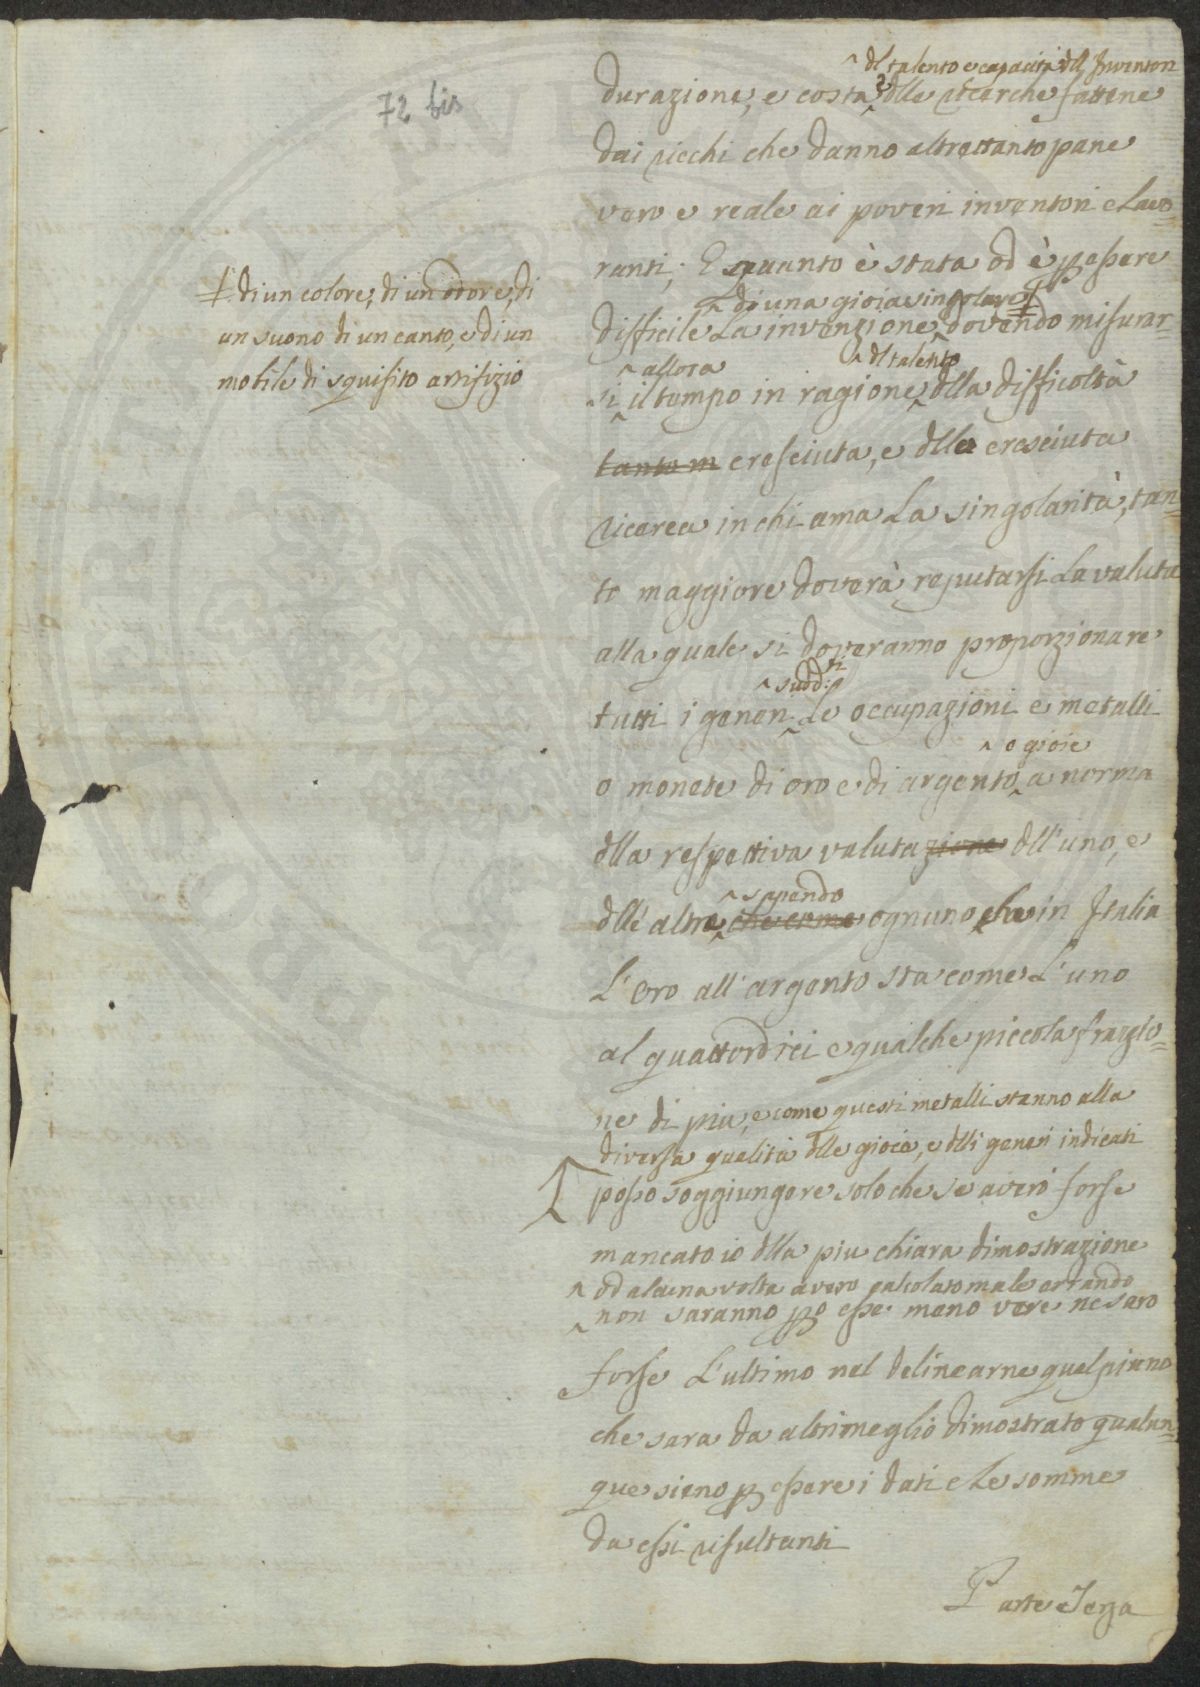 72 bis
^ dl talento e capacità dll Inventori
durazione, e costa dlle ricerche fattene
dai ricchi che danno altrettanto pane
vero e reale ai poveri inventori e Lavo=
ranti; E quanto è stata od è p essere
^ di una gioia singolare ‡
difficile La invenzione, dovendo misurar=
^ allora ^ dl talento
si il tempo in ragione dlla difficoltà
tanto m cresciuta, e dlla cresciuta
ricerca in chi ama La singolarità, tan=
to maggiore doverà reputarsi La valuta
alla quale si doveranno proporzionare
^ sudd:ti
tutti i generi Le occupazioni e metalli
^ o gioie
o monete di oro e di argento a norma
dlla respettiva valutazione dll'uno, e
^ sapendo
dlle altre che come ognuno che in Italia
L'oro all'argento sta come L'uno
al quattordici e qualche piccola frazio=
ne di più, e come questi metalli stanno alla
diversa qualità dlle gioie, e dlli generi indicati
posso soggiungere solo che se averò forse
mancato io dlla piu chiara dimostrazione
^ od alcuna volta avero calcolato male errando
non saranno po esse meno vere ne saro
forse L'ultimo nel delinearne quel piano
che sara da altri meglio dimostrato qualun=
que sieno p essere i dati e Le somme
da essi risultanti
Parte Terza
‡ di un colore, di un odore, di
un suono di un canto, e di un
mobile di squisito artifizio